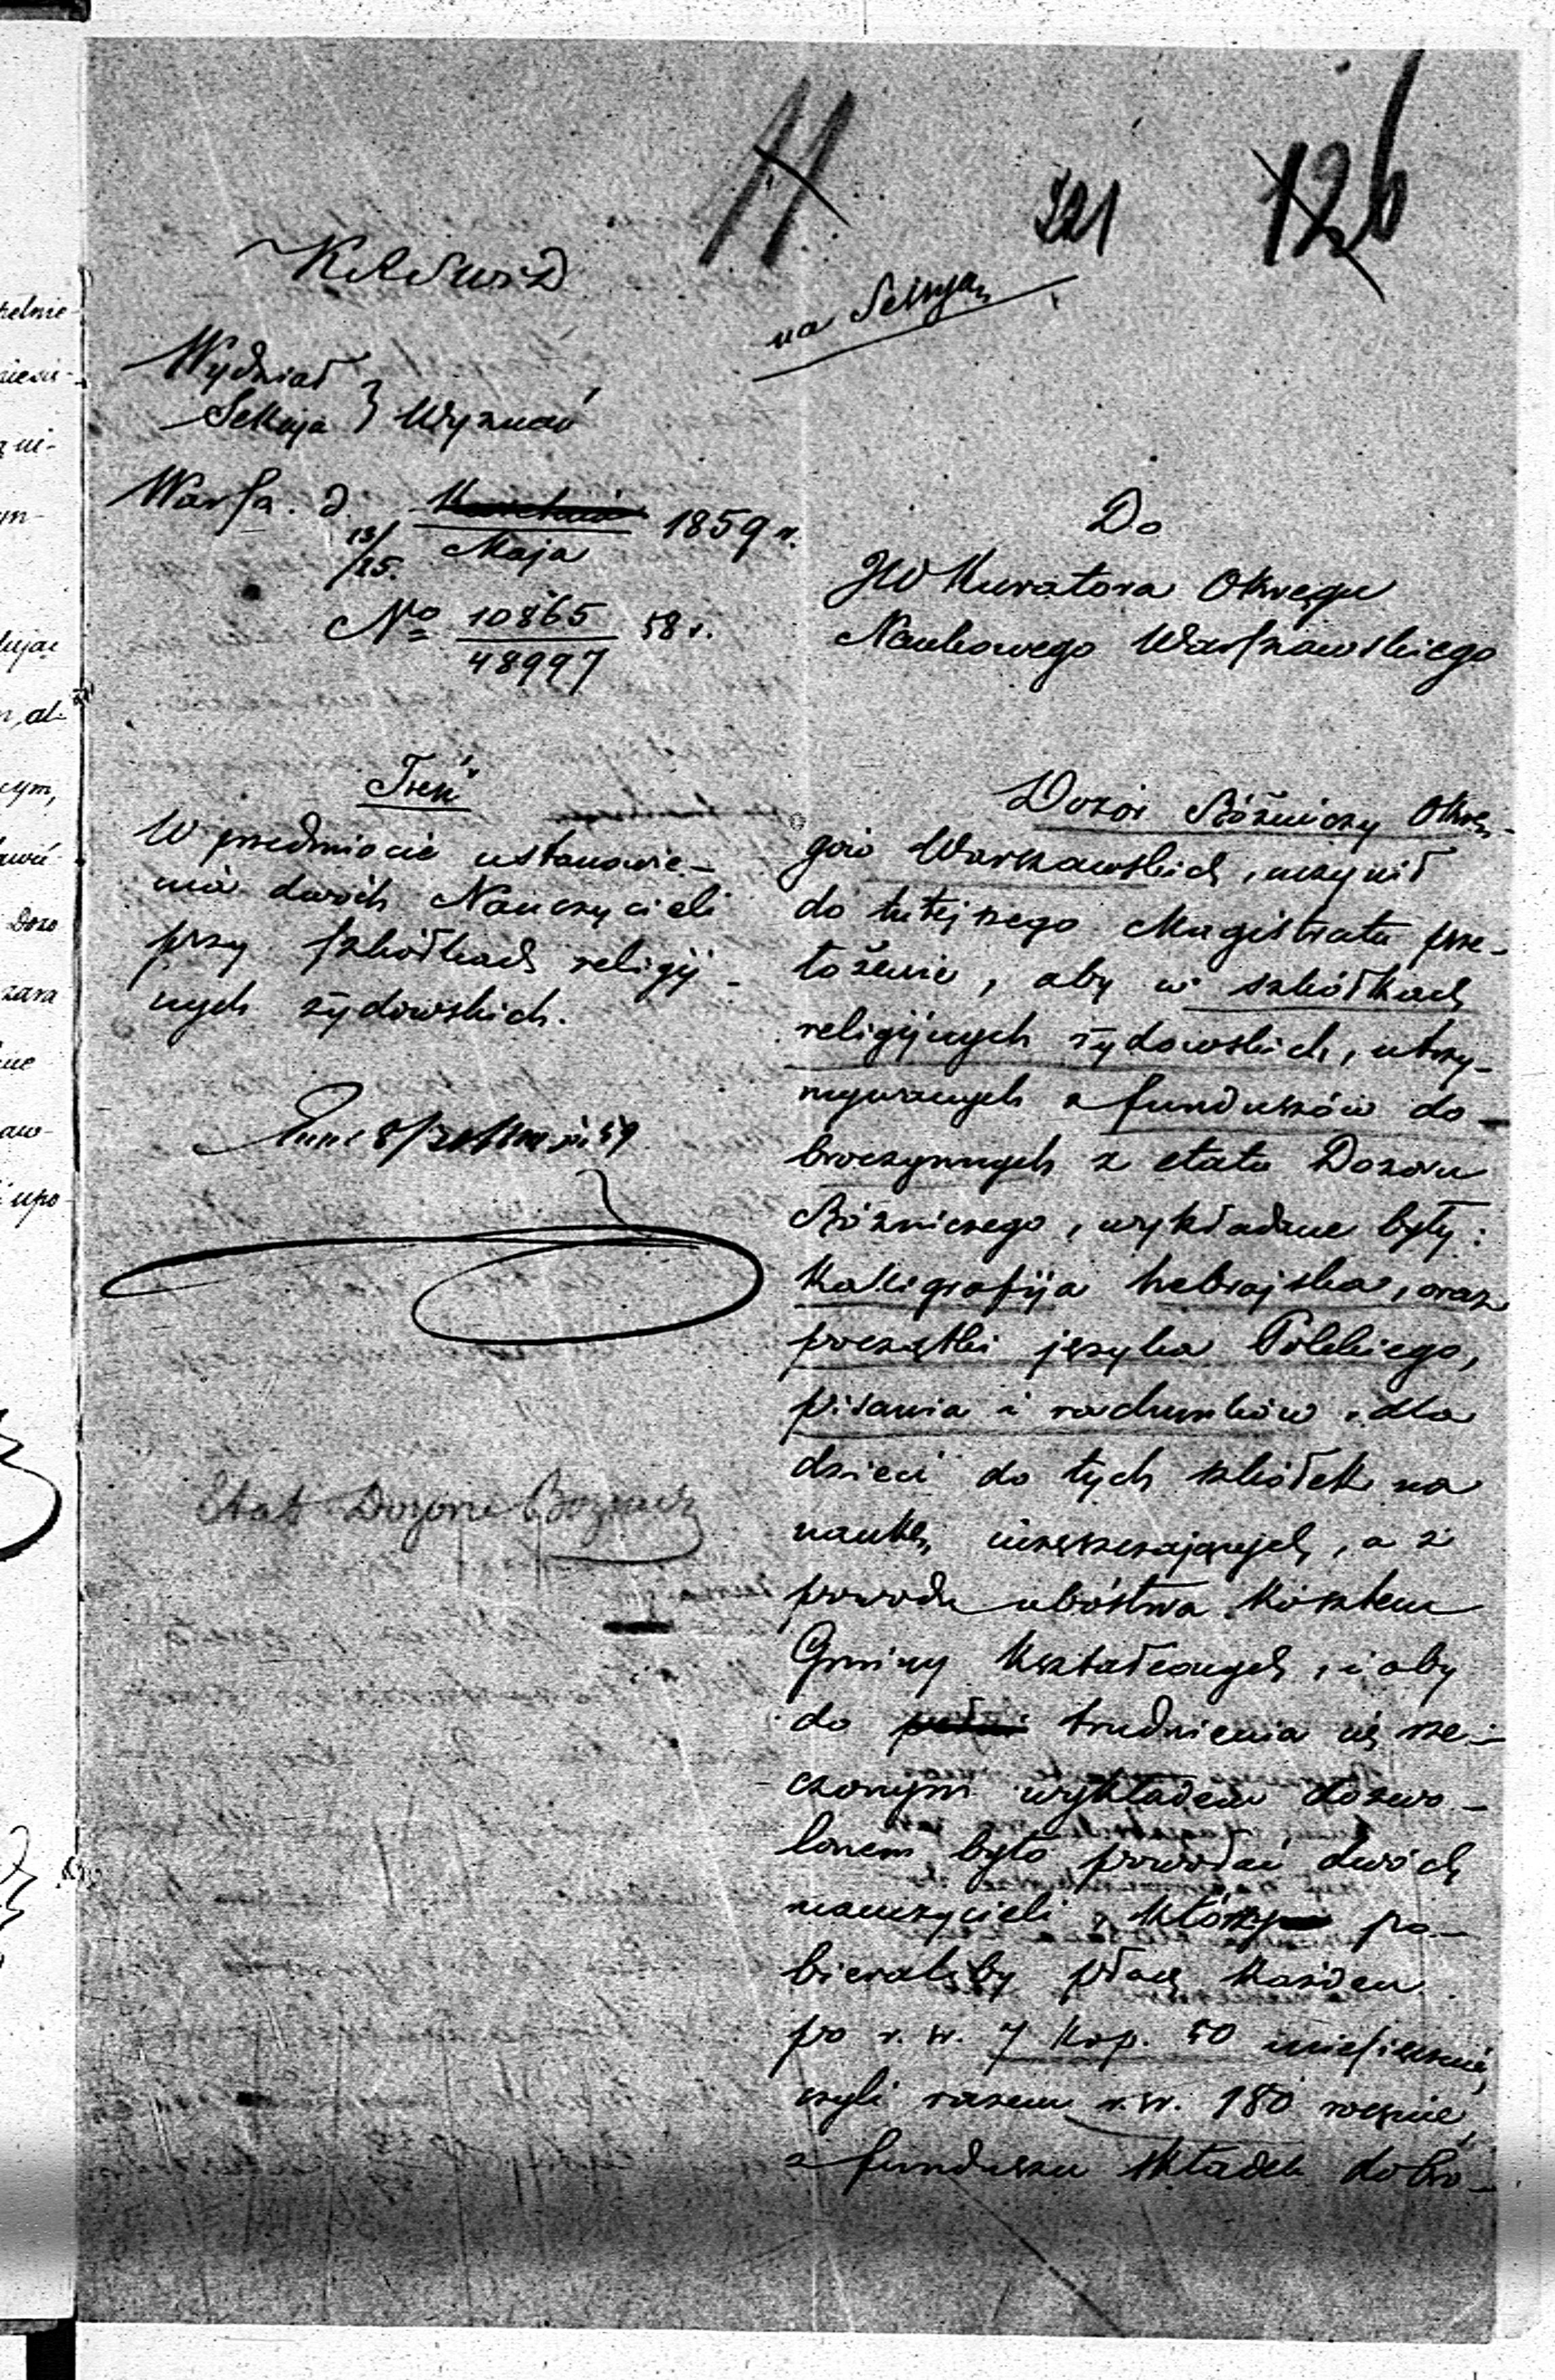 11
221
126
na Sessyą
Wydział
Sekcja } Wyznań
Warsz. d. 13/25. Maja 1859 r.
No 10865/48997 58 r.
Treść
W przedmiocie ustanowie-
nia dwóch Nauczycieli
przy szkółkach religij-
nych żydowskich.
Etat Dozoru Bożnicz
Do
JW Kuratora Okręgu
Naukowego Warszawskiego
Dozór Bóżniczy Okrę-
gów Warszawskich, uczynił
do tutejszego Magistratu prze-
łożenie, aby w szkółkach
religijnych żydowskich, utrzy-
mywanych z funduszów do-
broczynnych z etatu Dozoru
Bóżniczego, wykładane były:
Kaligrafija hebrajska, oraz
początki języka Polskiego,
pisania i rachunków dla
dzieci do tych szkółek na
naukę uczęszczających, a z
powodu ubóstwa kosztem
Gminy kształconych, i aby
do trudnienia się rze-
czonym wykładem dozwo-
lonem było powołać dwóch
nauczycieli, którzy po-
bieraliby płacę każden
po r. sr. 7 kop. 50 miesięcznie,
czyli razem r. sr. 180 rocznie,
z funduszu składek dobro-